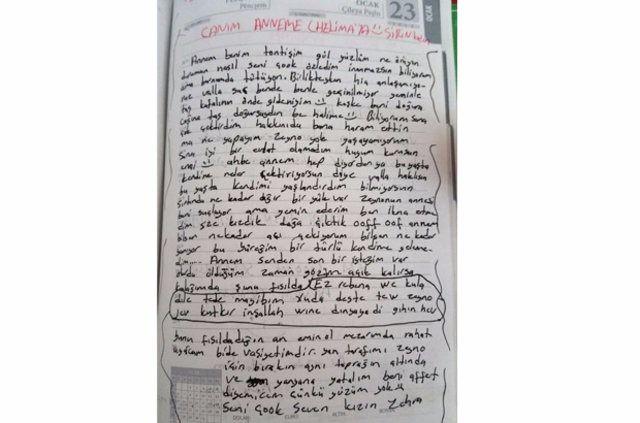 OCAK
23
OCAK
CANIM ANNEME (HELİMA'YA
Annem benim tontişim gül yüzlüm ne
duruman nasıl seni çook özledim inanmazsın biliyorum
ama burnumda tütüyon. Birlikteyken hiç
valla sıç bende bende geçinilmiyor yeminle
taş kafalının önde gidenisim keşke beni doğura
cağına taş doğursaydın be halime Biliyorum sana
çok çektirdim hakkında bana haram ettin
ma ne yapayım Zeyno yok yaşayamıyorum
Sana iyi bir evlat olamadım huyum kurusun
annem hep diyordun ya bu yaşta
kendime neler çektiriyorsun diye valla haklısın
bu yaşta kendimi yaşlandırdım bilmiyorsun
sırtımda ne kadar ağır bir yük var Zeynonun annesi
beni suçluyor ama yemin ederim ben ikna etme
dim size kızdık dağa çıktık ooff oof annem
bilsen ne kadar acı çekiyorum bilsen ne kadar
yanıyor bu yüreğim bir türlü kendime geleme
dim... Annem senden son bir isteğim var
olurda öldüğüm zaman gözüm açık kalırsa
kulağımda şunu fısılda (EZ rabuna we kula
dile tede maybım xuda deste tew zeyno
jev katkır inşallah wine dunyaye di gihin hev
bunu fısıldadığın an emin ol mezarımda rahat
uyucam bide vasiyetimdir. yan tarafımı zeyno
için bırakın aynı toprağın altında
ve yanyana yatalım beni affet
diyemicem çünkü yüzüm yok
Seni Çook Seven kızın Zehra